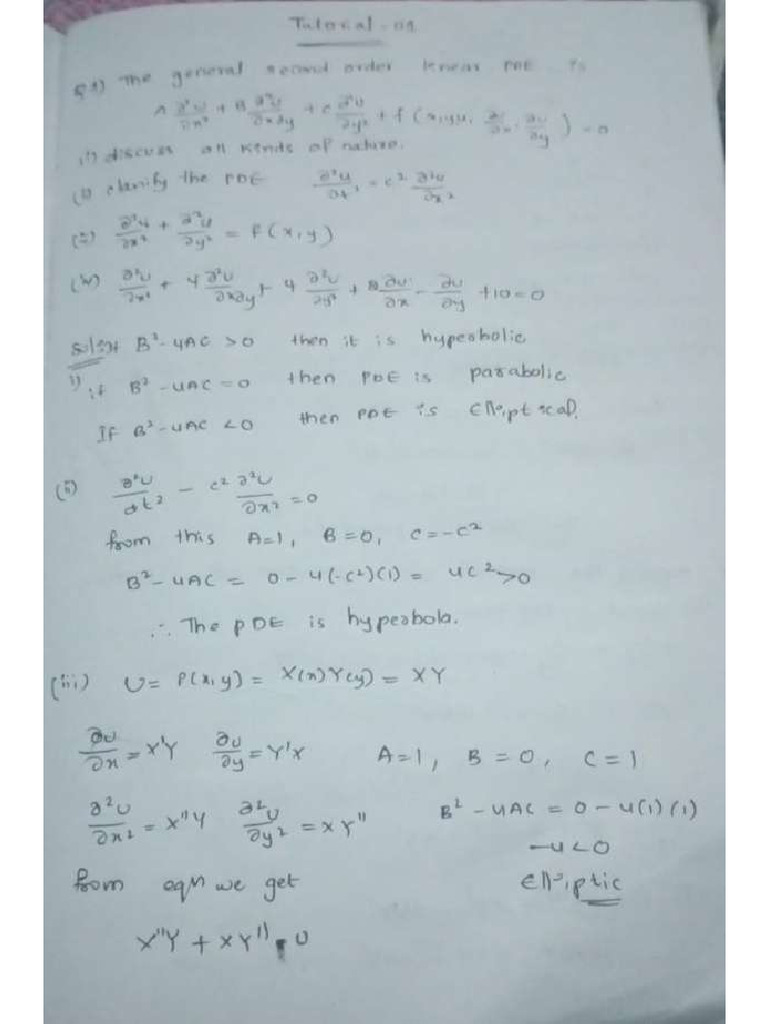 Tutorial - 01
Q1) The general second order linear PDE is
A ∂²U/∂x² + B ∂²U/∂x∂y + C ∂²U/∂y² + f(x,y,u, ∂u/∂x, ∂u/∂y) = 0
i) discuss all kinds of nature.
(ii) clasify the PDE ∂²U/∂t² = c² ∂²U/∂x²
(iii) ∂²U/∂x² + ∂²U/∂y² = F(x,y)
(iv) ∂²U/∂x² + 4 ∂²U/∂x∂y + 4 ∂²U/∂y² + ∂U/∂x - ∂U/∂y + 10 = 0
B² - 4AC > 0 then it is hyperbolic
i) if B² - 4AC = 0 then PDE is parabolic
If B² - 4AC < 0 then PDE is Elliptical.
(ii) ∂²U/∂t² - c² ∂²U/∂x² = 0
from this A=1, B=0, C=-c²
B² - 4AC = 0 - 4(-c²)(1) = 4c² > 0
∴ The PDE is hyperbola.
(iii) U = F(x,y) = X(x)Y(y) = XY
∂U/∂x = X'Y ∂U/∂y = Y'X A=1, B=0, C=1
∂²U/∂x² = X"Y ∂²U/∂y² = XY" B² - 4AC = 0 - 4(1)(1)
-4<0
from eqn we get Elliptic
X"Y + XY" U